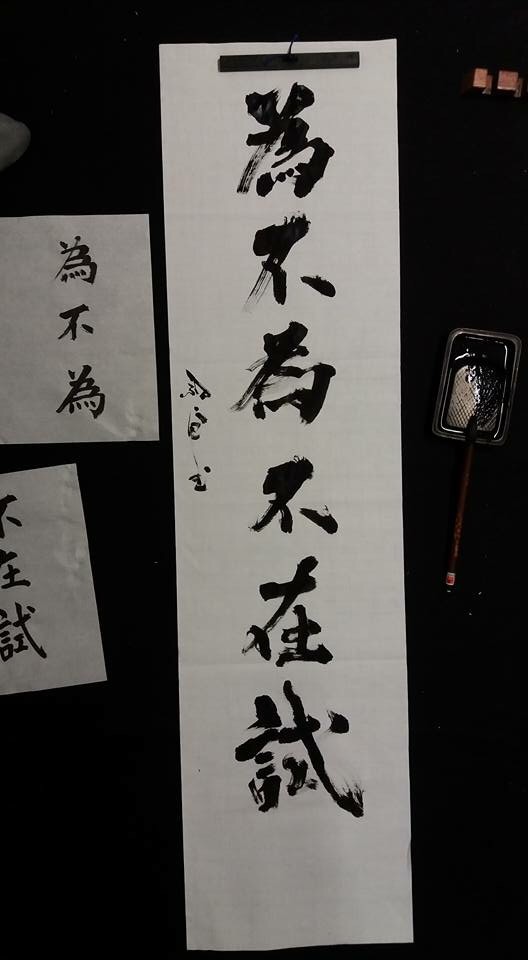 為不為不在試
為不為
不在試